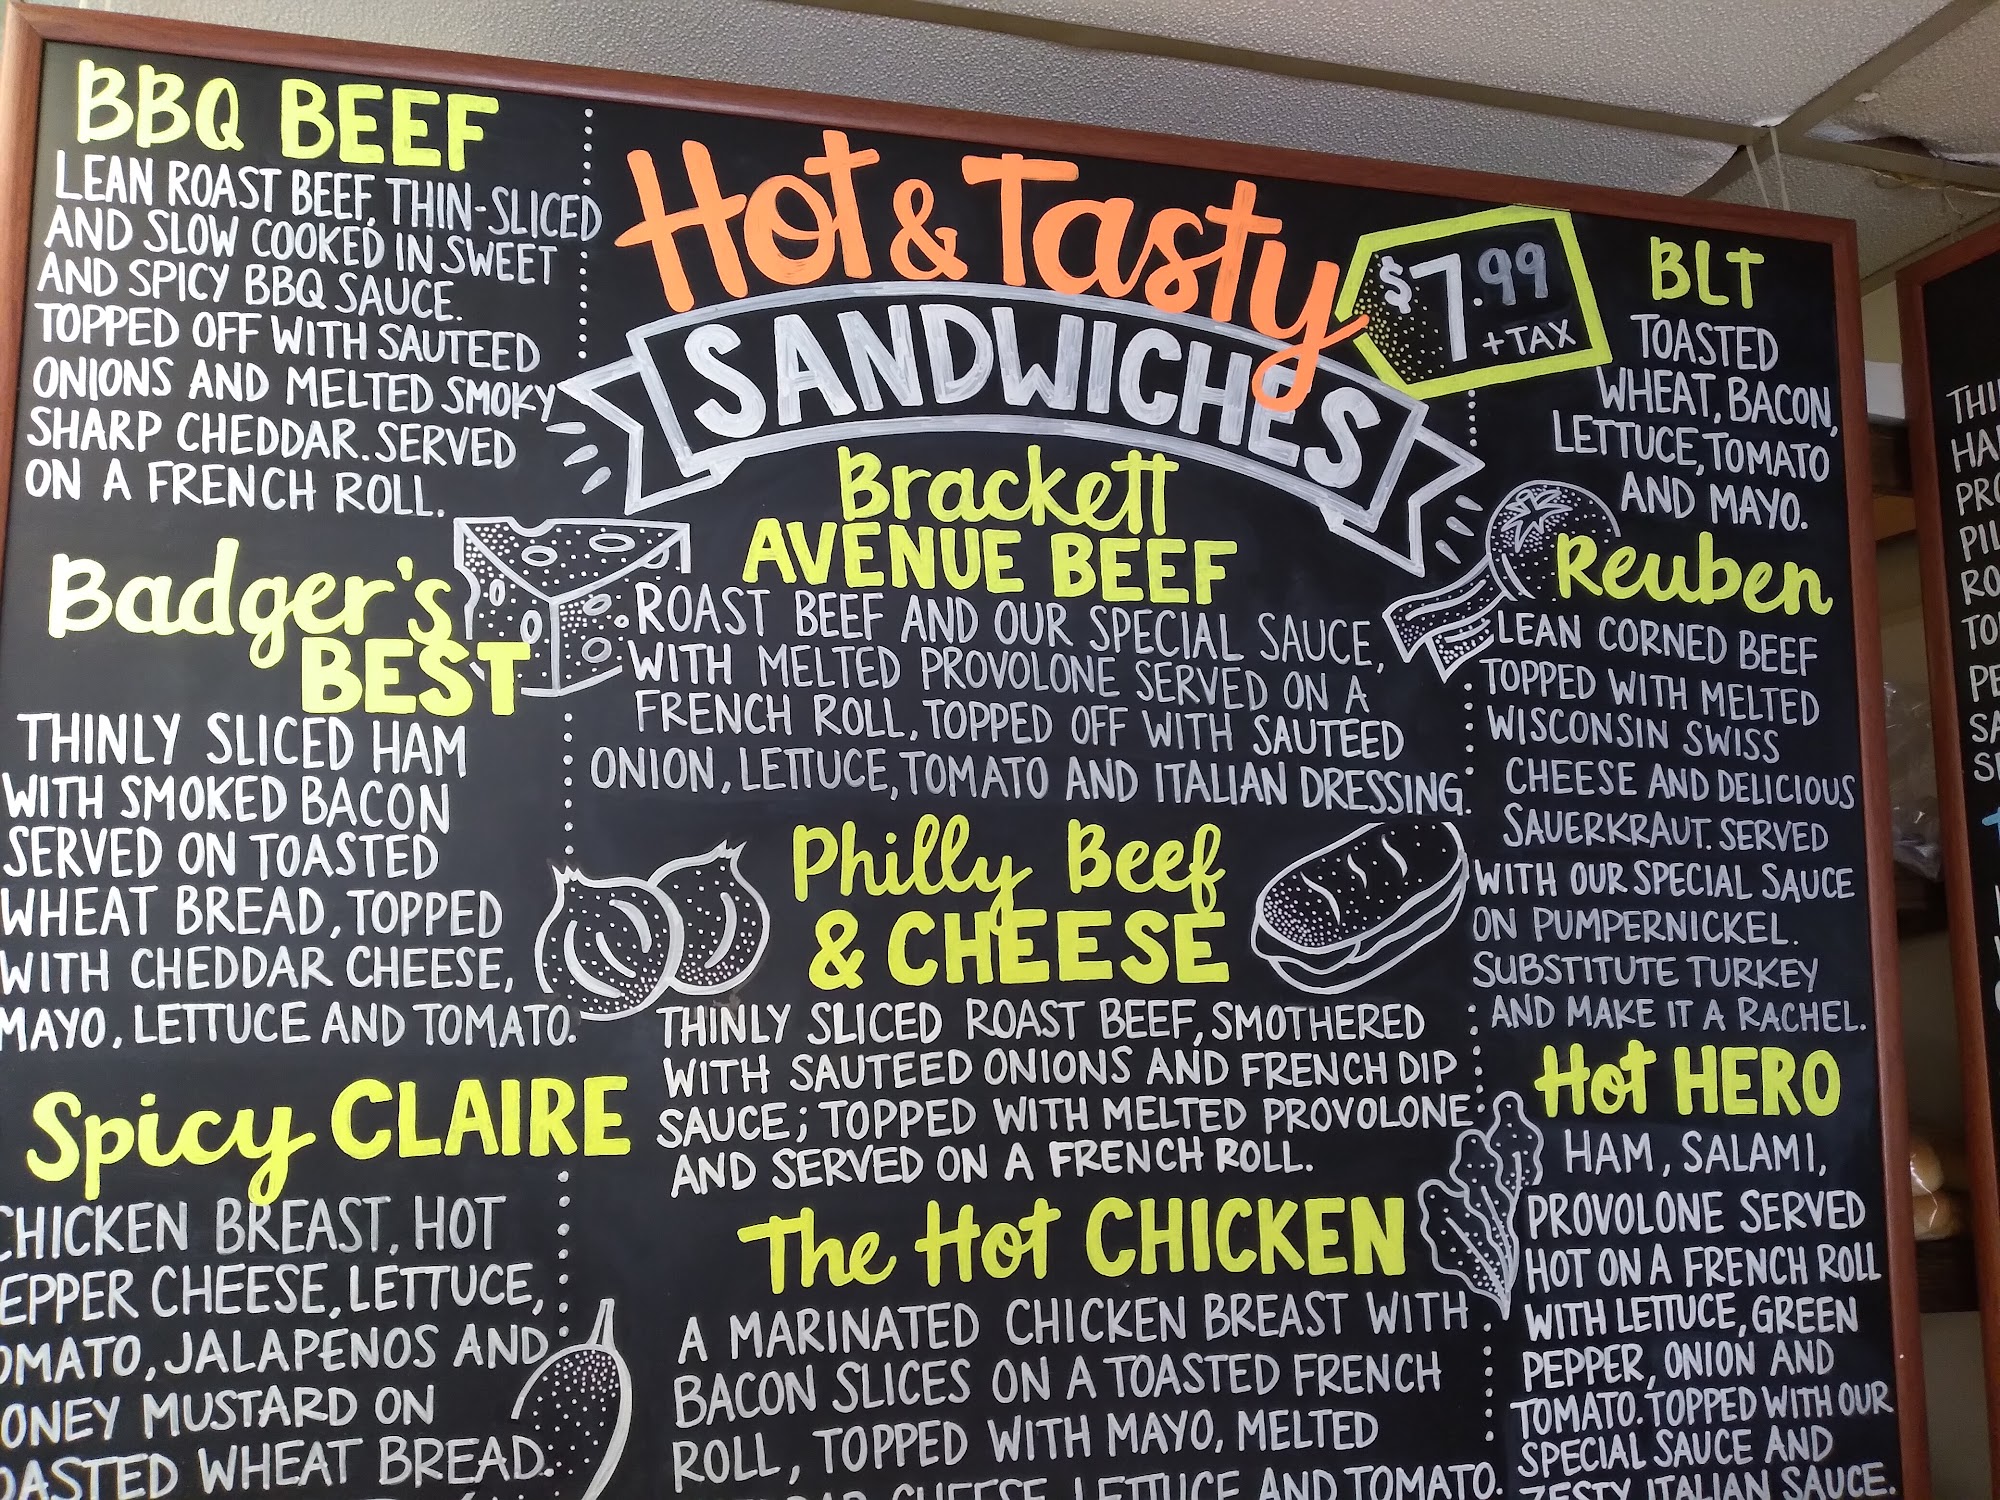 BBQ BEEF
LEAN ROAST BEEF, THIN-SLICED
AND SLOW COOKED IN SWEET
AND SPICY BBQ SAUCE.
TOPPED OFF WITH SAUTEED
ONIONS AND MELTED SMOKY
SHARP CHEDDAR. SERVED
ON A FRENCH ROLL.
Badger's
BEST
THINLY SLICED HAM
WITH SMOKED BACON
SERVED ON TOASTED
WHEAT BREAD, TOPPED
WITH CHEDDAR CHEESE,
MAYO, LETTUCE AND TOMATO.
Spicy CLAIRE
CHICKEN BREAST, HOT
EPPER CHEESE, LETTUCE,
OMATO, JALAPENOS AND
ONEY MUSTARD ON
OASTED WHEAT BREAD.
Hot & Tasty
SANDWICHES
$7.99
+TAX
Brackett
AVENUE BEEF
ROAST BEEF AND OUR SPECIAL SAUCE,
WITH MELTED PROVOLONE SERVED ON A
FRENCH ROLL, TOPPED OFF WITH SAUTEED
ONION, LETTUCE, TOMATO AND ITALIAN DRESSING.
Philly Beef
& CHEESE
THINLY SLICED ROAST BEEF, SMOTHERED
WITH SAUTEED ONIONS AND FRENCH DIP
SAUCE; TOPPED WITH MELTED PROVOLONE
AND SERVED ON A FRENCH ROLL.
The Hot CHICKEN
A MARINATED CHICKEN BREAST WITH
BACON SLICES ON A TOASTED FRENCH
ROLL, TOPPED WITH MAYO, MELTED
CHEESE, LETTUCE AND TOMATO.
BLT
TOASTED
WHEAT, BACON,
LETTUCE, TOMATO
AND MAYO.
Reuben
LEAN CORNED BEEF
TOPPED WITH MELTED
WISCONSIN SWISS
CHEESE AND DELICIOUS
SAUERKRAUT. SERVED
WITH OUR SPECIAL SAUCE
ON PUMPERNICKEL.
SUBSTITUTE TURKEY
AND MAKE IT A RACHEL.
Hot HERO
HAM, SALAMI,
PROVOLONE SERVED
HOT ON A FRENCH ROLL
WITH LETTUCE, GREEN
PEPPER, ONION AND
TOMATO. TOPPED WITH OUR
SPECIAL SAUCE AND
ZESTY ITALIAN SAUCE.